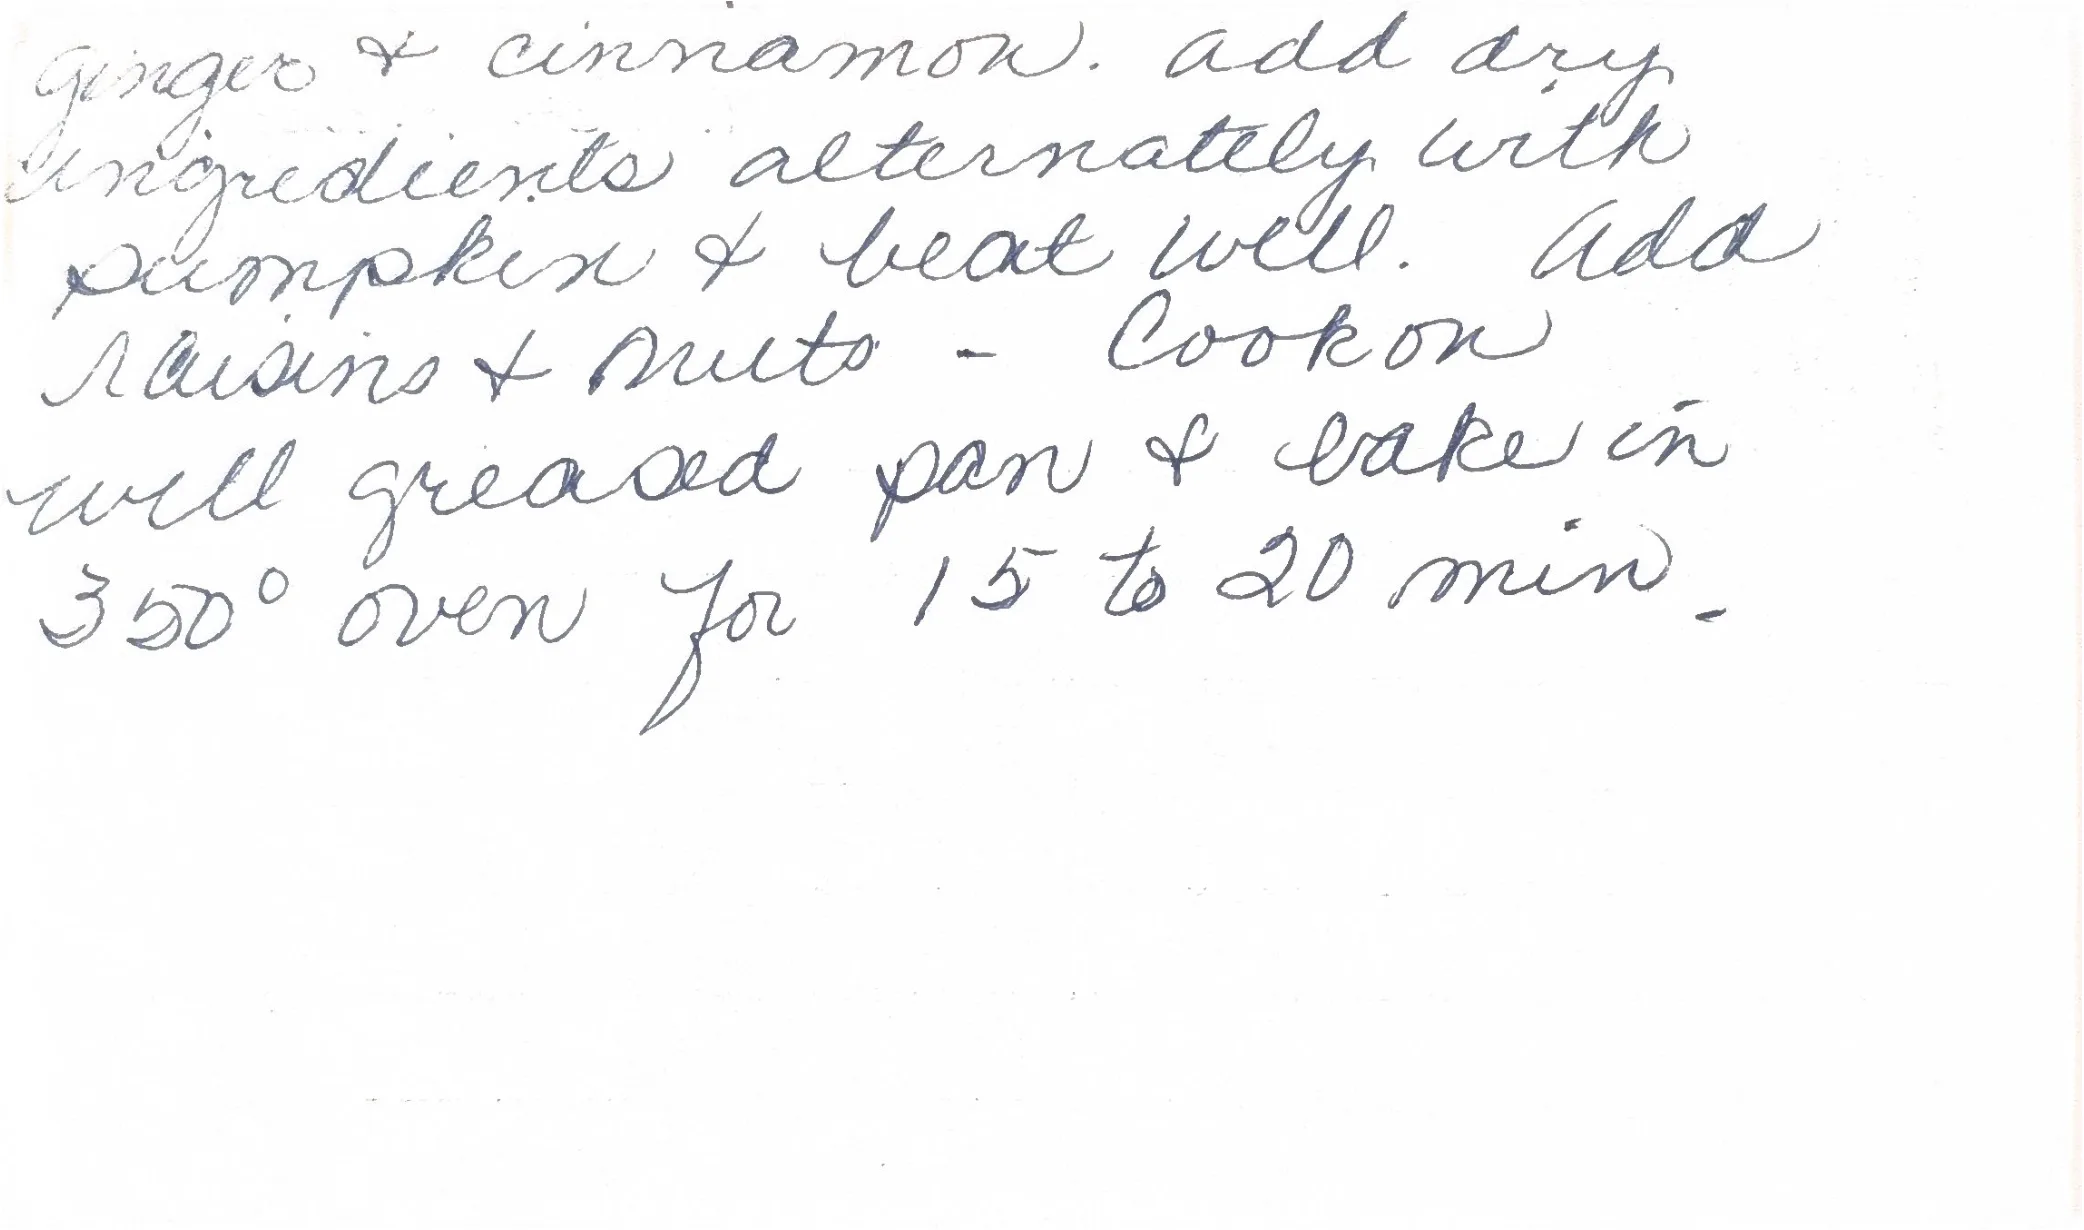 ginger & cinnamon. add dry
ingredients alternately with
pumpkin & beat well. Add
raisins & nuts - Cook on
well greased pan & bake in
350° oven for 15 to 20 min.